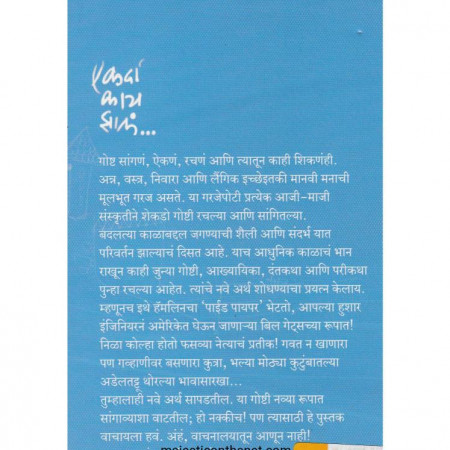 एकदा
काय
झालं...
गोष्ट सांगणं, ऐकणं, रचणं आणि त्यातून काही शिकणंही.
अन्न, वस्त्र, निवारा आणि लैंगिक इच्छेइतकी मानवी मनाची
मूलभूत गरज असते. या गरजेपोटी प्रत्येक आजी-माजी
संस्कृतीने शेकडो गोष्टी रचल्या आणि सांगितल्या.
बदलत्या काळाबद्दल जगण्याची शैली आणि संदर्भ यात
परिवर्तन झाल्याचं दिसत आहे. याच आधुनिक काळाचं भान
राखून काही जुन्या गोष्टी, आख्यायिका, दंतकथा आणि परीकथा
पुन्हा रचल्या आहेत. त्यांचे नवे अर्थ शोधण्याचा प्रयत्न केलाय.
म्हणूनच इथे हॅमलिनचा ‘पाईड पायपर’ भेटतो, आपल्या हुशार
इंजिनियरनं अमेरिकेत घेऊन जाणाऱ्या बिल गेट्सच्या रूपात!
निळा कोल्हा होतो फसव्या नेत्याचं प्रतीक! गवत न खाणारा
पण गव्हाणीवर बसणारा कुत्रा, भल्या मोठ्या कुटुंबातल्या
अडेलतट्टू थोरल्या भावासारखा...
तुम्हालाही नवे अर्थ सापडतील. या गोष्टी नव्या रूपात
सांगाव्याशा वाटतील; हो नक्कीच! पण त्यासाठी हे पुस्तक
वाचायला हवं. अंहं, वाचनालयातून आणून नाही!
majesticonthenet.com